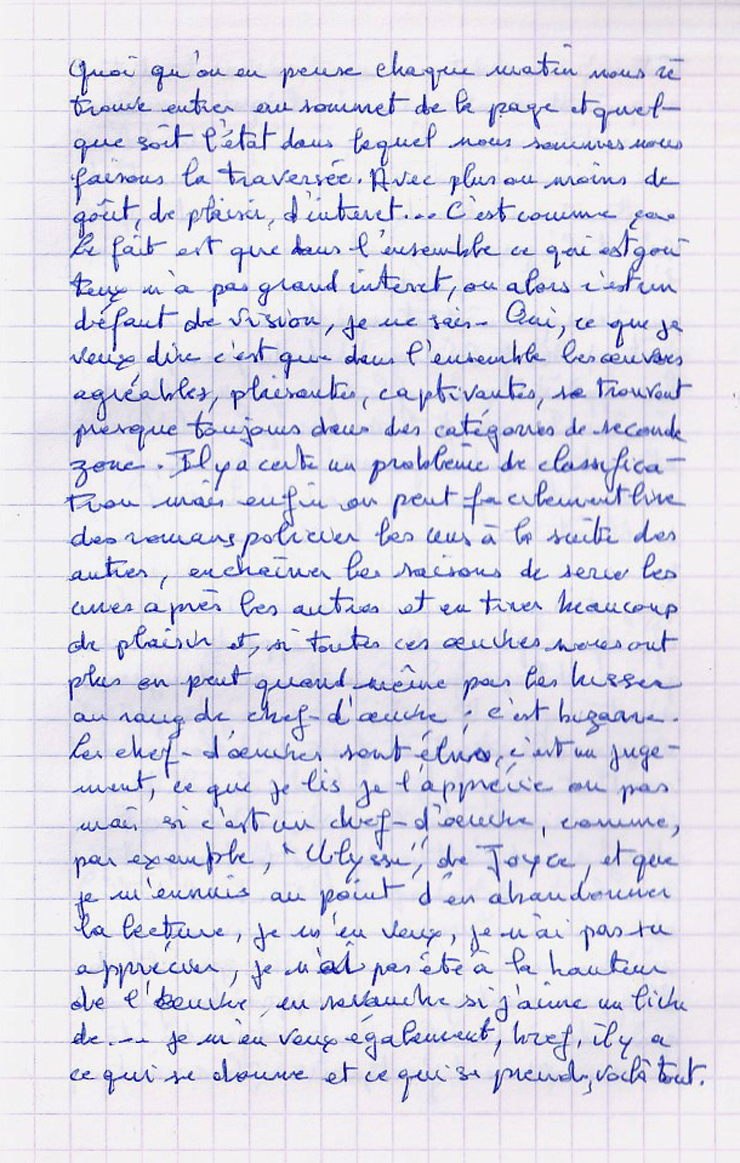 Quoi qu'on en pense chaque matin nous re
trouve entier au sommet de la page et quel-
que soit l'état dans lequel nous sommes nous
faisons la traversée. Avec plus ou moins de
goût, de plaisir, d'intérêt... C'est comme ça.
Le fait est que dans l'ensemble ce qui est gou
teux n'a pas grand interet, ou alors c'est un
défaut de vision, je ne sais. Oui, ce que je
veux dire c'est que dans l'ensemble les œuvres
agréables, plaisantes, captivantes, se trouvent
presque toujours dans des catégories de seconde
zone. Il y a certe un problème de classifica-
tion mais enfin on peut facilement lire
des romans policier les uns à la suite des
autres, enchaîner les saisons de serie les
unes après les autres et en tirer beaucoup
de plaisir et, si toutes ces œuvres nous ont
plus on peut quand même pas les hisser
au rang de chef-d'œuvre ; c'est bizarre.
Les chef-d'œuvres sont élus, c'est un juge-
ment, ce que je lis je l'apprécie ou pas
mais si c'est un chef-d'œuvre, comme,
par exemple, "Ulysse", de Joyce, et que
je m'ennuis au point d'en abandonner
la lecture, je m'en veux, je n'ai pas su
apprécier, je n'ai pas été à la hauteur
de l'œuvre, en revanche si j'aime un livre
de... je m'en veux également, bref, il y a
ce qui se donne et ce qui se prend, voilà tout.